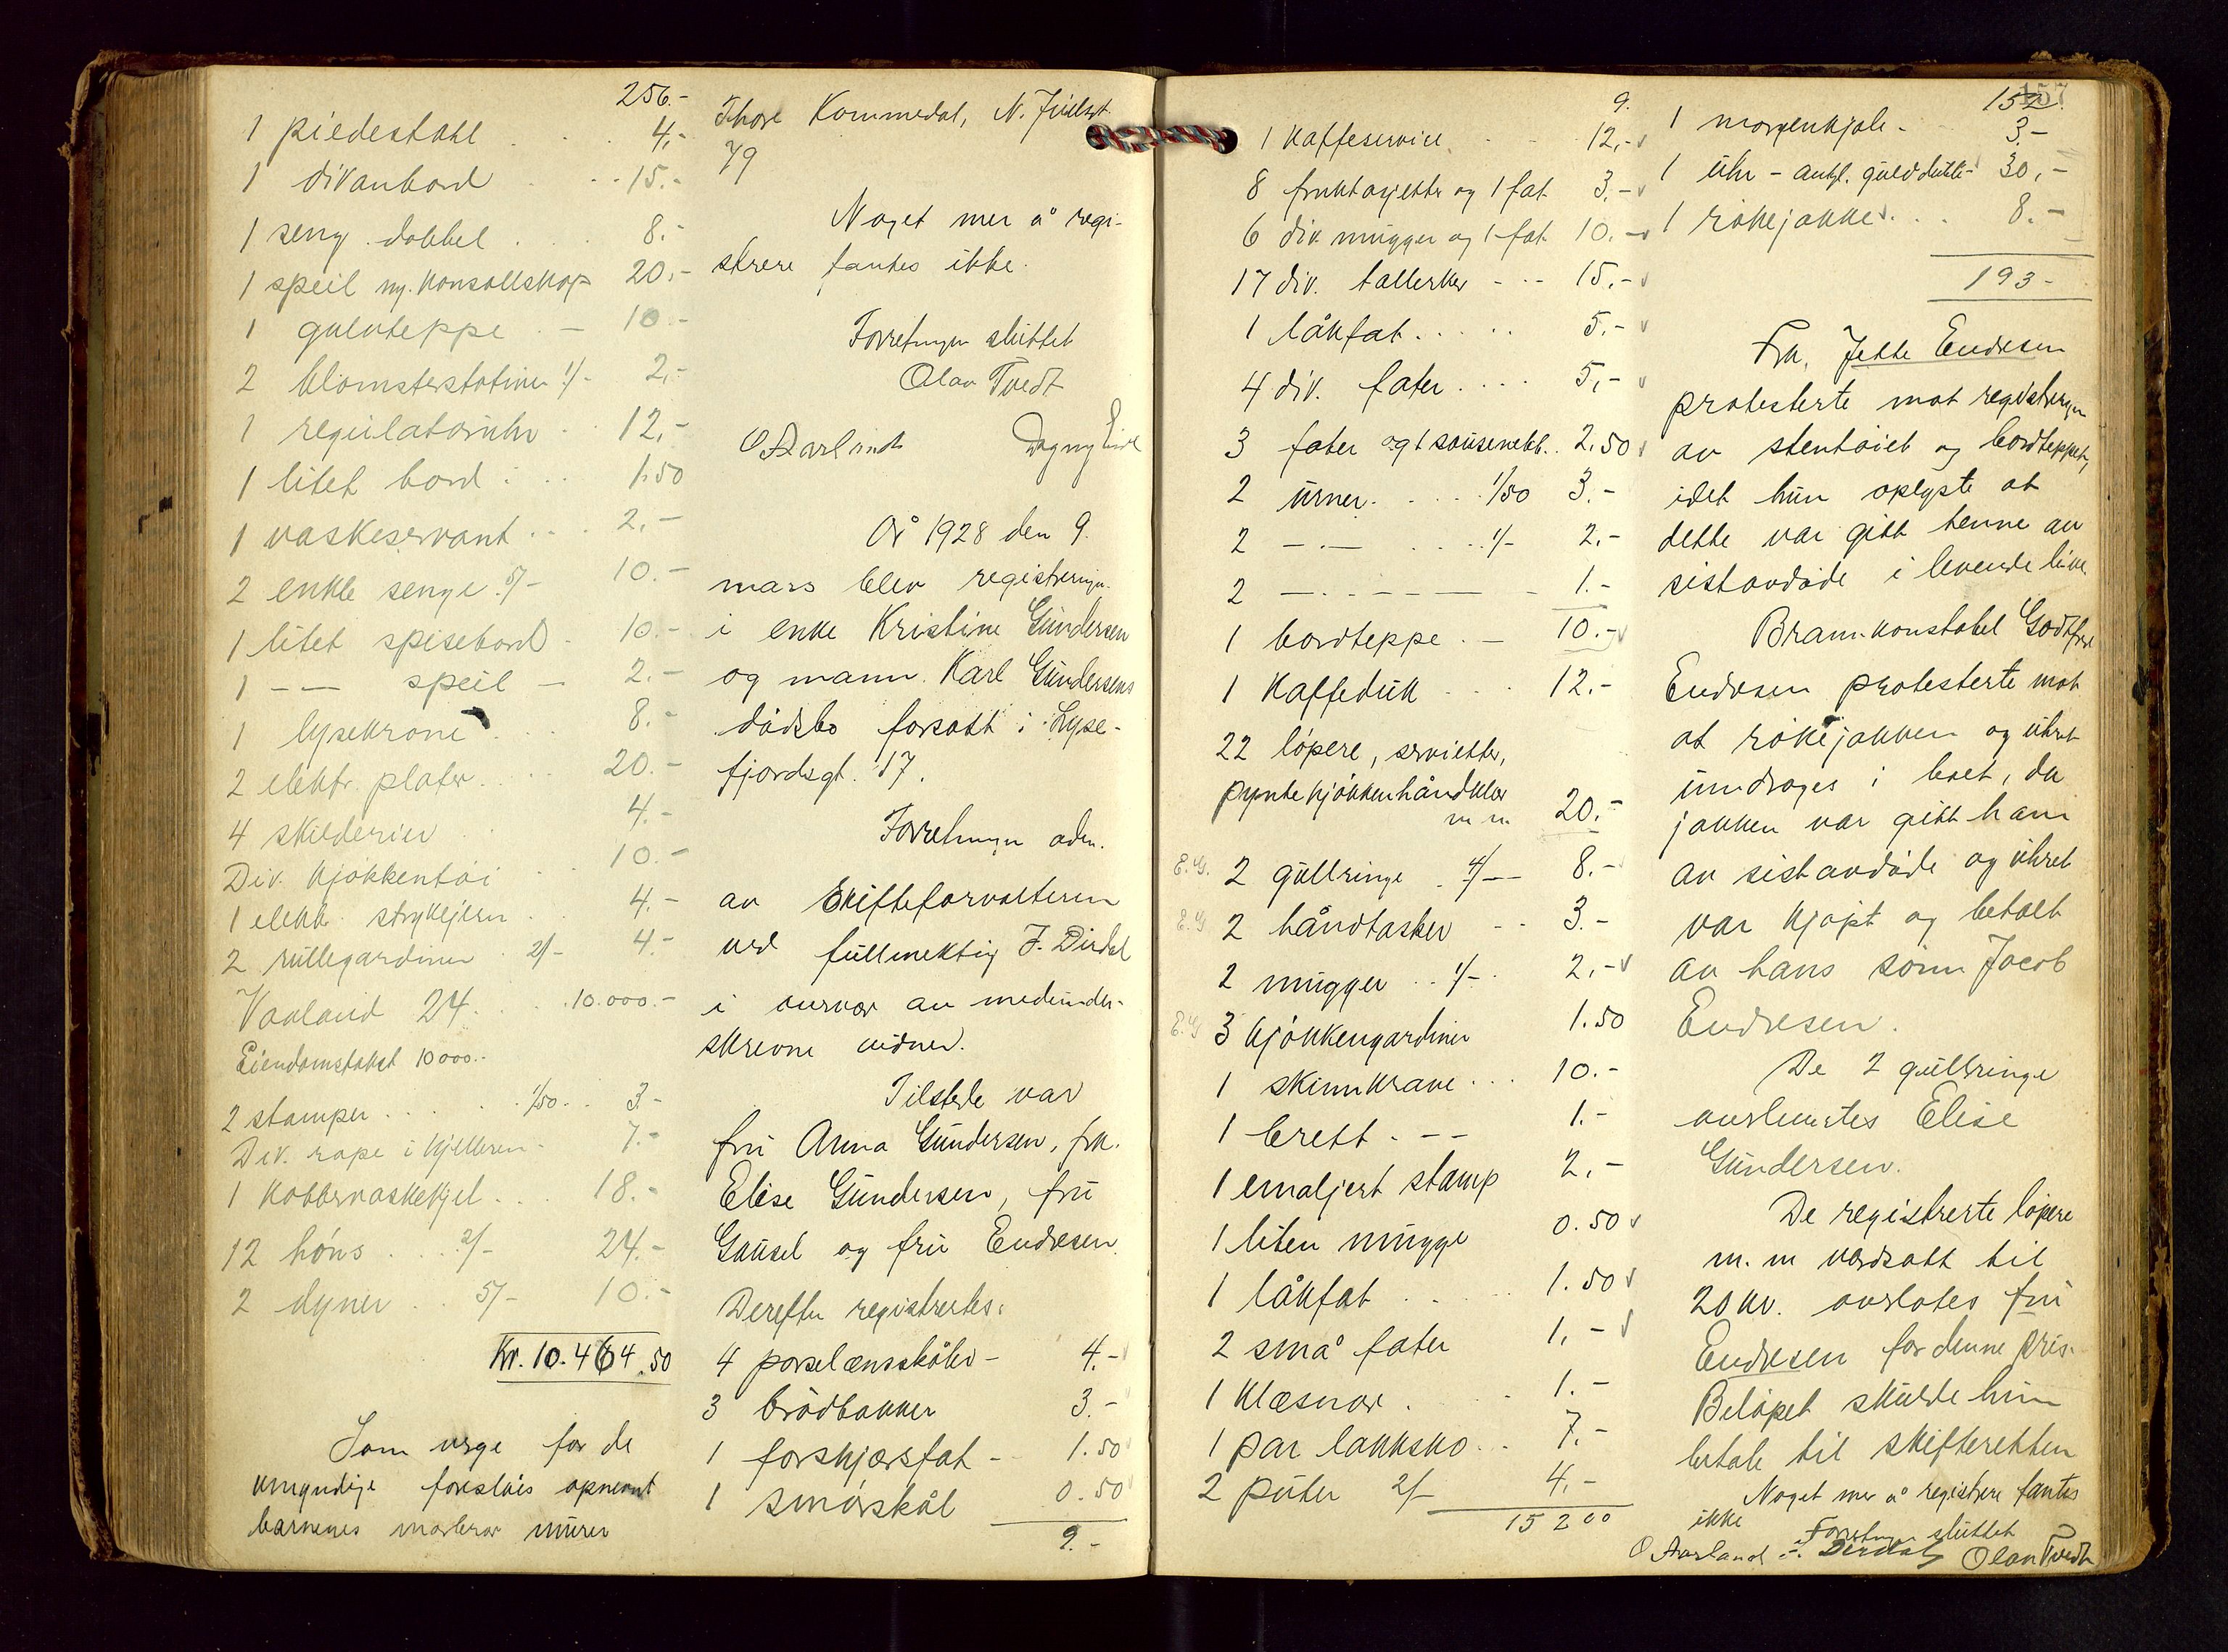 256.-
1 piedestahl . . 4,-
1 divanbord . . . 15.-
1 seng dobbel . . 8.-
1 speil m. konsollskap 20.-
1 gulvteppe . - 10.-
2 blomsterstativer 1/- 2,-
1 regulatoruhr . 12,-
1 litet bord . . . 1.50
1 vaskeservant . . . 2,-
2 enkle senge 5/- 10.-
1 litet spisebord . 10.-
1 - - speil - 2.-
1 lysekrone . . . 8.-
2 elektr. plater . . . 20.-
4 skilderier . . 4.-
Div. kjøkkentøi . . 10.-
1 elektr. strykejern . 4.-
2 rullegardiner 2/- 4.-
Vaaland 24. . . . 10.000.-
Eiendomstakst 10000.-
2 stamper . . . . 1/50 . . 3.-
Div. rape i kjelleren - 7.-
1 kobbervaskekjel . . . 18.-
12 høns . . . 2/- 24.-
2 dyner . . 5/- 10.-
Kr. 10.464.50
Som verge for de
umyndige foreslaaes opnevnt
barnenes morbror murer
Thore Kommedal, N.
79
Noget mer å regi-
strere fantes ikke.
Forretningen sluttet
Olav Tvedt
O Aarland Dagny
År 1928 den 9.
mars blev registrering
i enke Kristine Gundersen
og mann Karl Gundersens
dødsbo forsatt i Lyse-
fjordsgt. 17.
Forretningen adm.
av Skifteforvalteren
ved fullmektig J. Dirdal
i overvær av medunder-
skrevne vidner.
Tilstede var
fru Anna Gundersen, frk.
Elise Gundersen, fru
Gausel og fru Endresen.
Derefter registrertes:
4 porselænsskåler - 4.-
3 brødbakker 3.-
1 forskjærsfat - 1.50
1 smørskål 0.50
9.-
9.
1 kaffeservice . - - 12,-
8 fruktasjetter og 1 fat 3.-
6 div. mugger og 1 fat 10.-
17 div. tallerker - - - 15.-
1 låkfat . . . . . 5.-
4 div. fater . . . . 5,-
3 fater og 1 sausenebb . . 2.50
2 urner . . . . 1/50 3.-
2 - . - . . . 1/- 2.-
2 - . - - - - - 1.-
1 bordteppe . - 10.-
1 Kaffeduk . . . 12.-
22 løpere, servietter,
pyntekjøkkenhåndklær
m m. 20.-
E.G. 2 gullringe . 4/- 8.-
E.G 2 håndtasker - - 3.-
2 mugger . . 1/- . 2,-
E.G 3 kjøkkengardiner 1.50
1 skinnkrave . . . 10.-
1 brett . - - 1.-
1 emaljert stamp 2,-
1 liten mugge 0.50
1 låkfat . . . 1.50
2 små fater 1,-
1 klæsnor . . 1.-
1 par lakksko . . 7.-
2 puter 2/- 4.-
15200
157
152.
1 morgenkjole - 3.-
1 uhr - antgl. gulddublé - 30,-
1 røkejakke . . . 8.-
193-
Frk. Jette Endresen
protesterte mot registreringen
av stentøiet og bordteppet,
idet hun oplyste at
dette var gitt henne av
sistavdøde i levende live.
Brannkonstabel Godtfred
Endresen protesterte mot
at røkejakken og uhret
inndrages i boet, da
jakken var gitt ham
av sistavdøde og uhret
var kjøpt og betalt
av hans sønn Jacob
Endresen.
De 2 gullringe
overlevertes Elise
Gundersen.
De registrerte løpere
m. m verdsatt til
20 kr. overlotes fru
Endresen for denne pris.
Beløpet skulde hun
betale til skifteretten
Noget mer å registrere fantes
ikke
Forretningen sluttet
O Aarland J. Dirdal Olav Tvedt